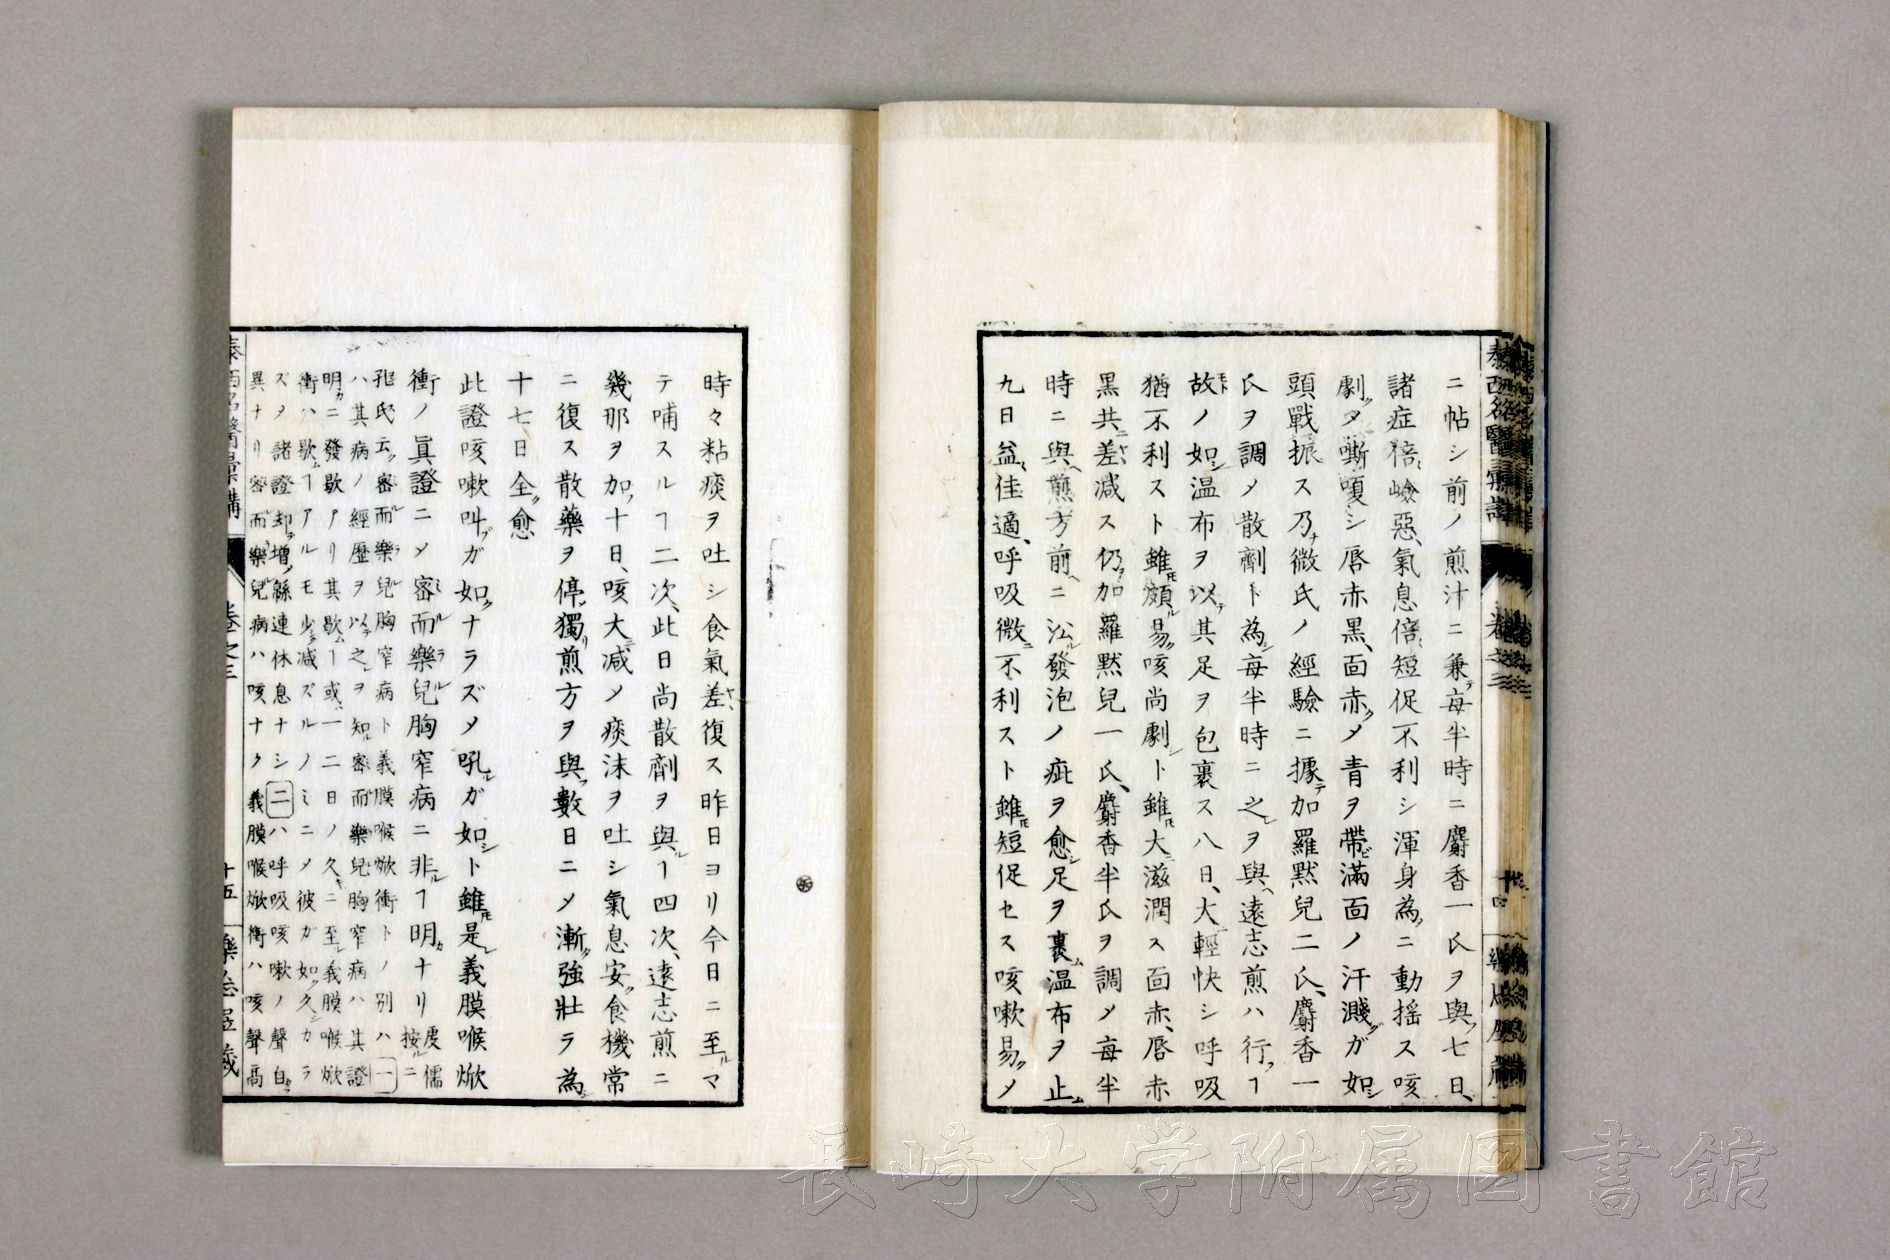 ニ帖シ前ノ煎汁ニ兼テ毎半時ニ麝香一氏ヲ與フ七日、
諸症倍々嶮惡、氣息倍々短促不利シ渾身為ニ動揺ス咳
劇クメ嘶嗄シ唇赤黒、面赤クメ青ヲ帶ビ滿面ノ汗濺グガ如シ
頭戰振ス乃チ微氏ノ經驗ニ據テ加羅黙兒二氏、麝香一
氏ヲ調メ散劑ト為シ毎半時ニ之レヲ與ヘ遠志煎ハ行フヿ
故ノ如シ温布ヲ以テ其足ヲ包裹ス八日、大ニ輕快シ呼吸
猶不利スト雖モ頗ル易ク咳尚劇シト雖モ大ニ滋潤ス面赤、唇赤
黒共ニ差ヤヽ減ス仍テ加羅黙兒一氏、麝香半氏ヲ調メ毎半
時ニ與ヘ煎方前ヘニ沿ル發泡ノ疵ヲ愈シ足ヲ裹ム温布ヲ止ム
九日益々佳適、呼吸微ニ不利スト雖モ短促セス咳嗽易クメ
時々粘痰ヲ吐シ食氣差ヤヽ復ス昨日ヨリ今日ニ至ルマ
テ哺スルヿ二次、此日尚散劑ヲ與ルヿ四次、遠志煎ニ
幾那ヲ加フ十日、咳大ニ減メ痰沫ヲ吐シ氣息安ク食機常
ニ復ス散藥ヲ停メ獨リ煎方ヲ與フ數日ニメ漸ク強壯ラ為シ
十七日全ク愈
此證咳嗽叫ブガ如クナラズメ吼ルガ如シト雖モ是レ義膜喉焮
衝ノ眞證ニメ密而樂兒胸窄病ニ非ルヿ明カナリ 按ルニ度儒
孔氏云ク密而樂兒胸窄病ト義膜喉焮衝トノ別ハ一
ハ其病ノ經歴ヲ以テ之レヲ知ル密而樂兒胸窄病ハ其證
明カニ發歇アリ其歇ムヿ或ハ一二日ノ久キニ至ル義膜喉焮
衝ハ歇ムヿアルモ少シク減ズルノミニメ彼ガ如ク久シカラ
ズメ諸證却テ増シ緜連休息ナシ二ハ呼吸咳嗽ノ聲自ラ
異ナリ密而樂兒病ハ咳ナク義膜喉焮衝ハ咳聲高
泰西名醫彙講
卷之三
十四
十五